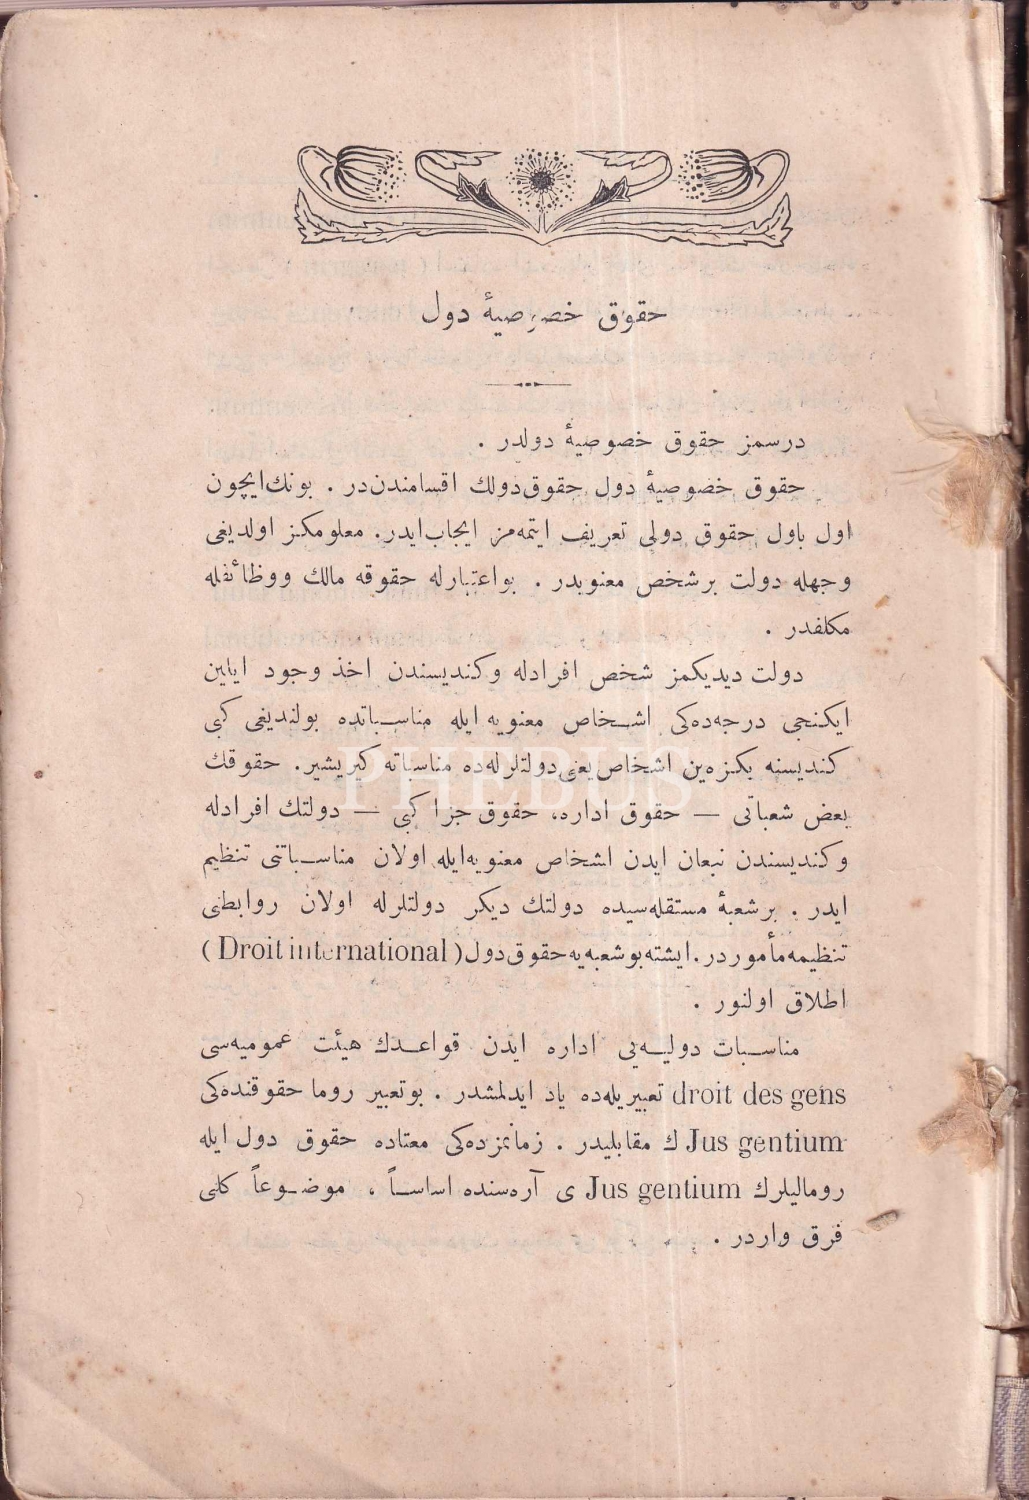 حقوق خصوصیهٔ دول
درسمز حقوق خصوصیهٔ دولدر .
حقوق خصوصیهٔ دول حقوق دولك اقسامندن‌در . بونك ایچون
اول باول حقوق دولی تعریف ایتمه‌مز ایجاب ایدر. معلومكز اولدیغی
وجهله دولت برشخص معنویدر . بواعتبارله حقوقه مالك ووظائفله
مكلفدر .
دولت دیدیكمز شخص افرادله وكندیسندن اخذ وجود ایلین
ایكنجی درجه‌ده‌كی اشخاص معنویه ایله مناسباتده بولندیغی كبی
كندیسنه بكزه‌ین اشخاص یعنی دولتلرله‌ده مناسباته كیریشیر. حقوقك
بعض شعباتی — حقوق اداره، حقوق جزا كبی — دولتك افرادله
وكندیسندن نبعان ایدن اشخاص معنویه‌ایله اولان مناسباتنی تنظیم
ایدر . برشعبهٔ مستقله‌سیده دولتك دیكر دولتلرله اولان روابطنی
تنظیمه مأموردر. ایشته بوشعبه‌یه حقوق دول ( Droit international )
اطلاق اولنور .
مناسبات دولیه‌یی اداره ایدن قواعدك هیئت عمومیه‌سی
droit des gens تعبیریله‌ده یاد ایدلمشدر . بوتعبیر روما حقوقنده‌كی
Jus gentium ك مقابلیدر . زمانمزده‌كی معتاده حقوق دول ایله
رومالیلرك Jus gentium ی آره‌سنده اساساً ، موضوعاً كلی
فرق واردر .
PHEBUS